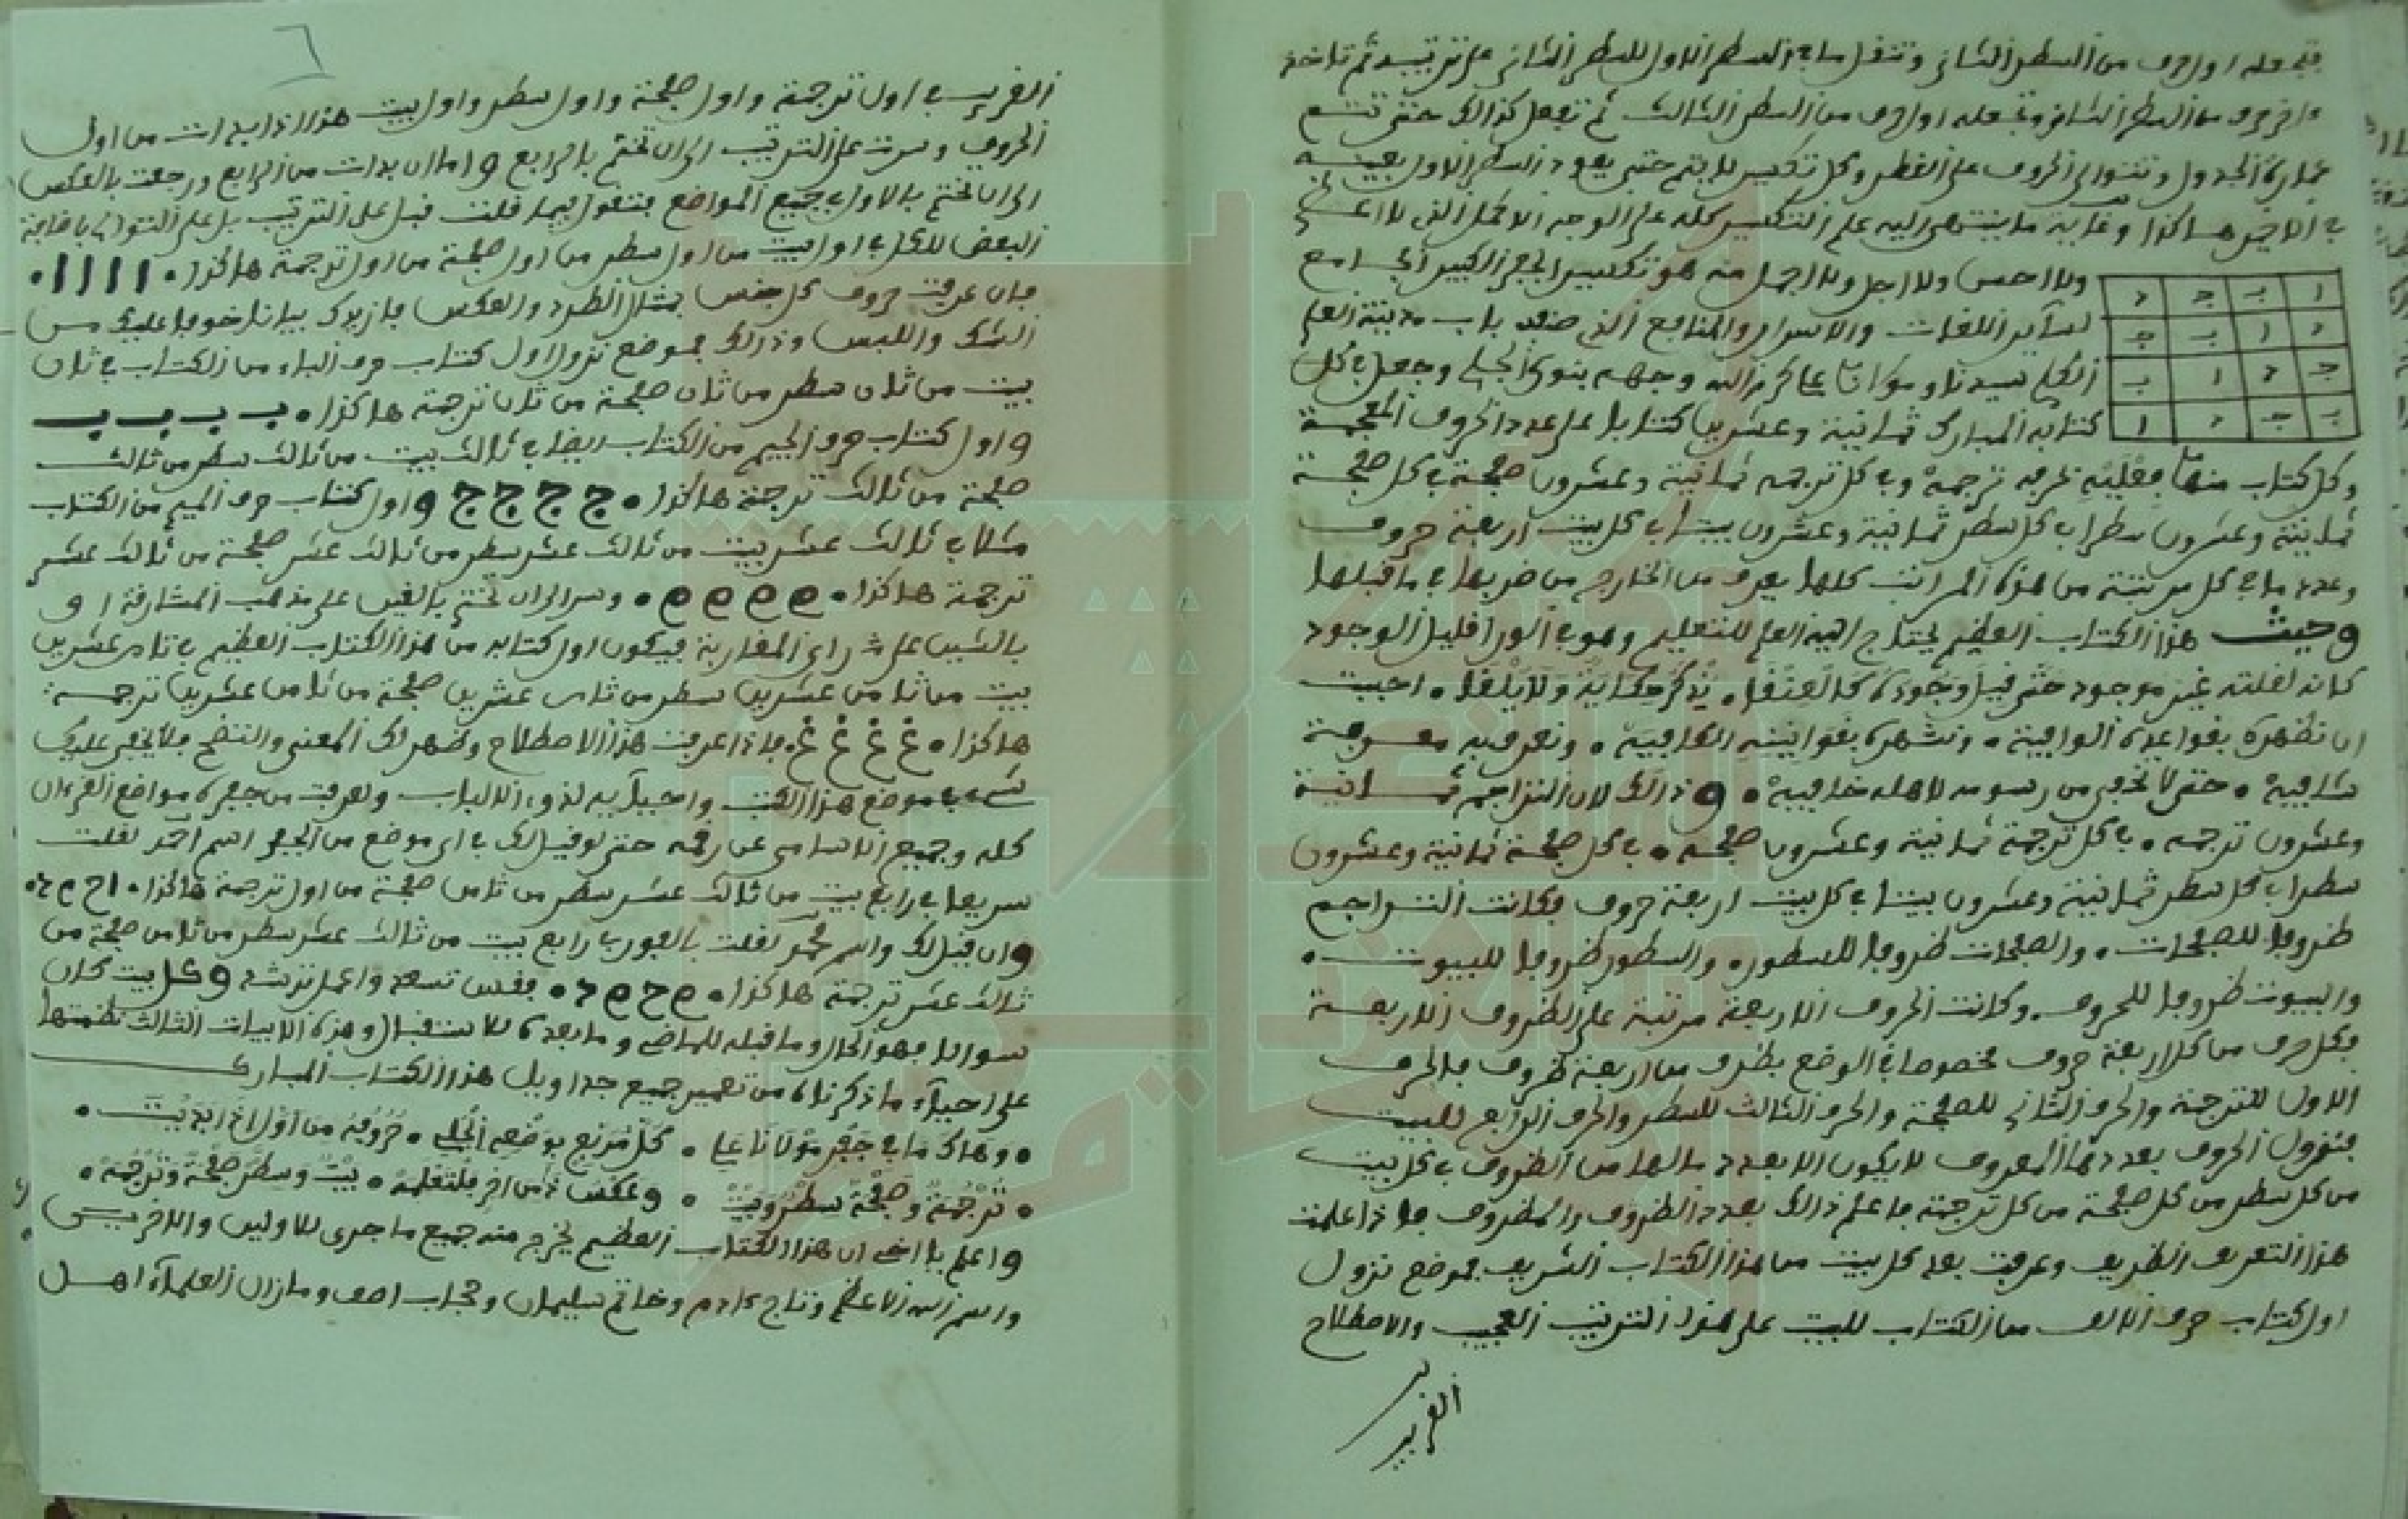 فتجعله اول حرف من السطر الثانى وتنقل ما فى السطر الاول للسطر الثانى على ترتيبه ثم تاخذ
ءاخر حرف من السطر الثانى وتجعله اول حرف من السطر الثالث ثم تفعل كذالك حتى تتم
عمارة الجدول وتتوالى الحروف على القطر وكل تكسير لا يتم حتى يعود السطر الاول بعينه
فى الاخير هاكذا وغاية ما ينتهى اليه علم التكسير كله على الوجه الاكمل الذى لا اعلى
ولا احسن ولا اجل ولا اجمل منه هو تكسير الجفر الكبير الجامع
لساير اللغات والاسرار والمنافع الذى صنفه باب مدينة العلم
سيدنا ومولانا على كرم الله وجهه بنوره الجلى وجعل فى كل
كتابه المبارك ثمانية وعشرين كتابا على عدد الحروف المعجمة
ا ب ج د
د ا ب ج
ج د ا ب
ب ج د ا
وكل كتاب منها ترجمة وفى كل ترجمه ثمانية وعشرون صفحة فى كل صفحة
ثمانية وعشرون سطرا فى كل سطر ثمانية وعشرون بيتا فى كل بيت اربعة حروف
وعدد ما فى كل مرتبة من هذه المراتب كلها يعرف من الخارج من ضربها فى ما قبلها
وحيث هذا الكتاب العظيم يحتاج اليه العلم للتعليم وهو فى الورا قليل الوجود
كانه لقلته غير موجود حتى قيل وجوده كالعنقا • يذكر حكاية ولا يلقا • احببت
ان نظهره بقواعده الوافية • ونشهره بقوانينه الكافية • ونعرف به معرفة
شافية • حتى لا تخفى من رسومه لاهله خافية • وذالك لان التراجم ثمانية
وعشرون ترجمه • فى كل ترجمة ثمانية وعشرون صفحه • فى كل صفحة ثمانية وعشرون
سطرا فى كل سطر ثمانية وعشرون بيتا فى كل بيت اربعة حروف فكانت التراجم
ظروفا للصفحات • والصفحات ظروفا للسطور • والسطور ظروفا للبيوت •
والبيوت ظروفا للحروف • وكانت الحروف الاربعة مرتبة على الظروف الاربعة
فكل حرف من كل اربعة حروف مخصوصا فى الوضع بظرف من اربعة ظروف فالحرف
الاول للترجمة والحرف الثانى للصفحة والحرف الثالث للسطر والحرف الرابع للبيت
فنزول الحروف بعددها المعروف لا يكون الا بعدد ما لها من الظروف فى كل بيت
من كل سطر من كل صفحة من كل ترجمة فاعلم ذالك بعدد الظروف والمظروف فاذا علمت
هذا التعريف الظريف وعرفت بعد كل بيت من هذا الكتاب الشريف فموضع نزول
اول كتاب حرف الالف من الكتاب للبيت على هذا الترتيب العجيب والاصطلاح
الغريب
٦
الغريب فى اول ترجمة واول صفحة واول سطر واول بيت هذا اذا بدات من اول
الحروف وسرت على الترتيب الى ان تختم بالرابع واما ان بدات من الرابع ورجعت بالعكس
الى ان تختم بالاول فى جميع المواضع فتقول فيما قلت قبل على الترتيب بل على التوالى باضافة
البعض للكل فى اول بيت من اول سطر من اول صفحة من اول ترجمة هاكذا • ا ا ا ا •
فان عرفت حروف كل بمثال الطرد والعكس فازيدك بيانا خوفا عليك من
الشك واللبس وذالك فموضع نزول اول كتاب حرف الباء من الكتاب فى ثان
بيت من ثان سطر من ثان صفحة من ثان ترجمة هاكذا • ب ب ب ب
واول كتاب حرف الجيم من الكتاب ايضا فى ثالث بيت من ثالث سطر من ثالث
صفحة من ثالث ترجمة هاكذا • ج ج ج ج واول كتاب حرف الميم من الكتاب
مثلا فى ثالث عشر بيت من ثالث عشر سطر من ثالث عشر صفحة من ثالث عشر
ترجمة هاكذا • م م م م • وسر الى ان تختم بالغين على مذهب المشارقة او
بالشين على راى المغاربة فيكون اول كتابه من هذا الكتاب العظيم فى ثامن عشرين
بيت من ثامن عشرين سطر من ثامن عشرين صفحة من ثامن عشرين ترجمة
هاكذا • غ غ غ غ • فاذا عرفت هذا الاصطلاح وظهر لك المعنى واتضح فلا يخفى عليك
شىء فى موضع هذا الكتب واحبابه لذوى الالباب وتعرفت من جفره مواضع القرءان
كله وجميع الاسامى عن رقمه حتى لو قيل لك فى اى موضع من الجفر اسم احمد لقلت
سريعا فى رابع بيت من ثالث عشر سطر من ثامن صفحة من اول ترجمة هاكذا • ا ح م د •
وان قيل لك واسم محمد لقلت بالفور فى رابع بيت من ثالث عشر سطر من ثامن صفحة من
ثالث عشر ترجمة هاكذا • م ح م د • فقس تسعد واعمل ترشد وكل بيت كان
سوالا فهو الحال وما قبله للماضى وما بعده للاستقبال وهذه الابيات الثالث نظمتها
على احياء ما ذكرناه من تعمير جميع جداويل هذا الكتاب المبارك
• وهاك ما فى جفر مولانا على • كل مربع بوضعه الجلى • حروفه من اول
• ترجمة وصفحة سطر وبيت • وعكس ذا من اخر فلتعلمه • بيت وسطر صفحة وترجمه •
واعلم يا اخى ان هذا الكتاب العظيم يخرج منه جميع ما جرى للاولين والاخرين
واسم الله الاعظم وتاج ءادم وخاتم سليمان وحجاب اصف ومازال العلماء اهل